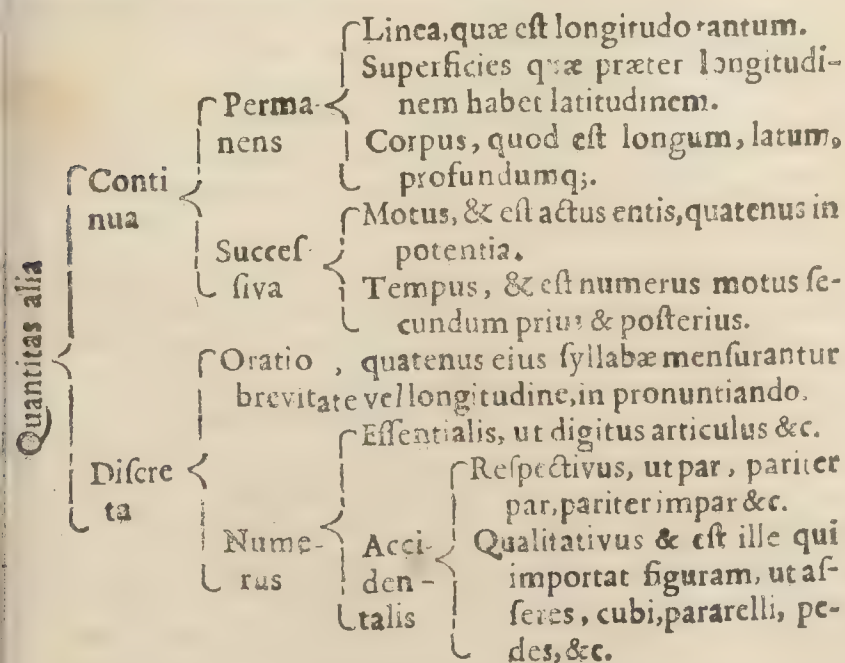 Quantitas alia
Conti
nua
Perma-
nens
Linea, quæ eſt longitudo tantum.
Superficies quæ præter longitudi-
nem habet latitudinem.
Corpus, quod eſt longum, latum,
profundumq;.
Succeſ-
ſiva
Motus, & eſt actus entis, quatenus in
potentia.
Tempus, & eſt numerus motus ſe-
cundum prius & poſterius.
Diſcre
ta
Oratio, quatenus eius ſyllabæ menſurantur
brevitate vel longitudine, in pronuntiando.
Nume-
rus
Eſſentialis, ut digitus articulus &c.
Acci-
den-
talis
Reſpectivus, ut par, pariter
par, pariter impar &c.
Qualitativus & eſt ille qui
importat figuram, ut aſ-
ſeres, cubi, pararelli, pe-
des, &c.